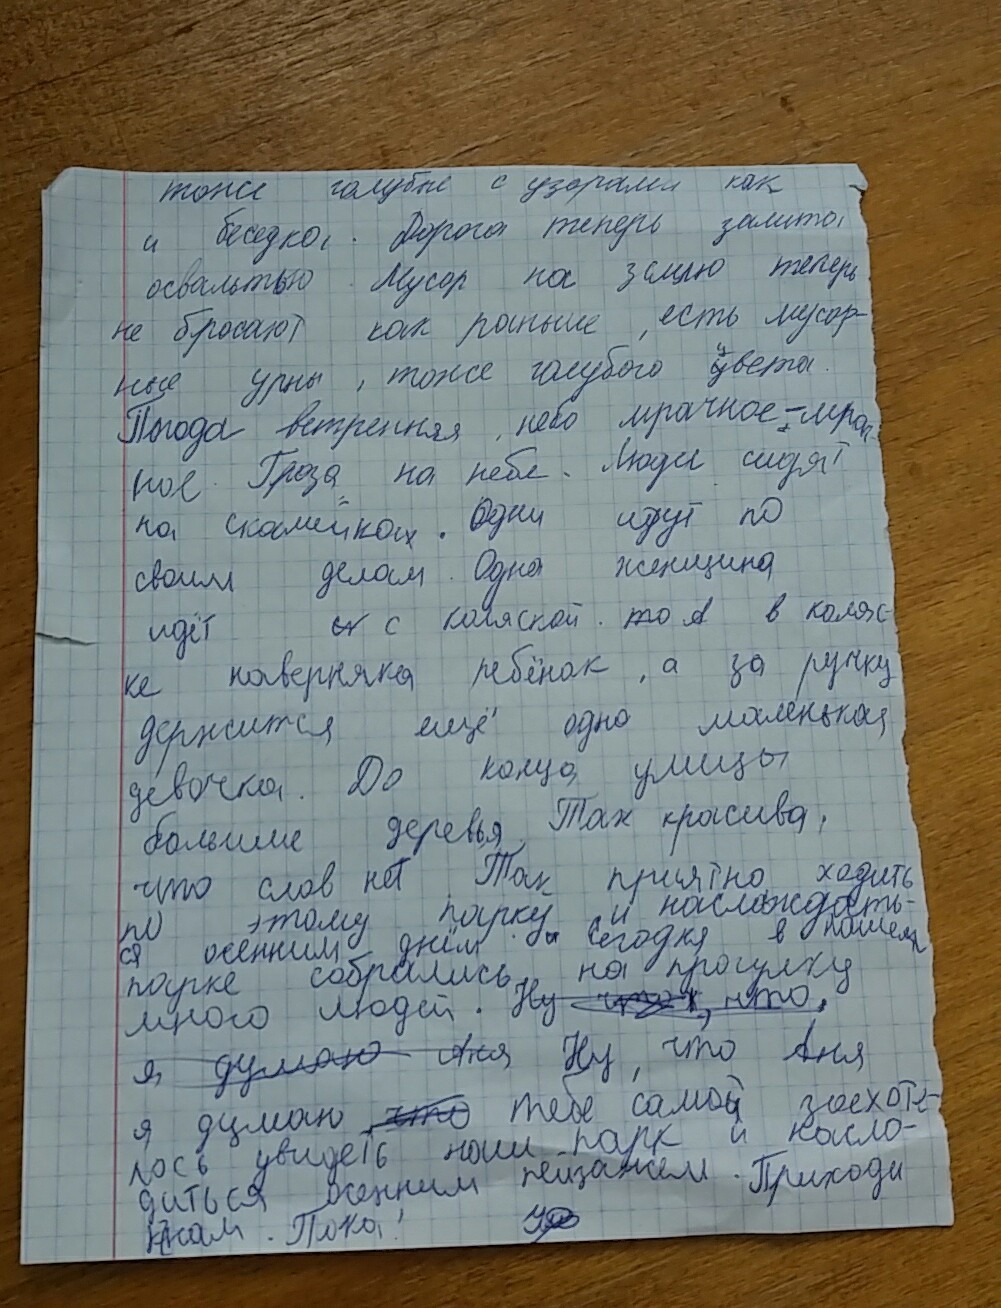 тоже голубые с узорами как
и беседка. Дорога теперь залита
освальтью. Мусор на землю теперь
не бросают как раньше, есть мусор-
ные урны, тоже голубого цвета.
Погода ветренняя, небо мрачное-мрач-
ное. Гроза на небе. Люди сидят
на скамейках. Одни идут по
своим делам. Одна женщина
идёт с коляской. А в коляс-
ке наверняка ребёнок, а за ручку
держится ещё одна маленькая
девочка. До конца улицы
большие деревья. Так красива,
что слов нет. Так приятно ходить
по этому парку и наслождать-
ся осенним днём. Сегодня в нашем
парке собрались на прогулку
много людей. Ну что,
я думаю Аня Ну, что Аня
я думаю что тебе самой захоте-
лось увидеть наш парк и насло-
диться осенним пейзажем. Приходи
к нам. Пока!